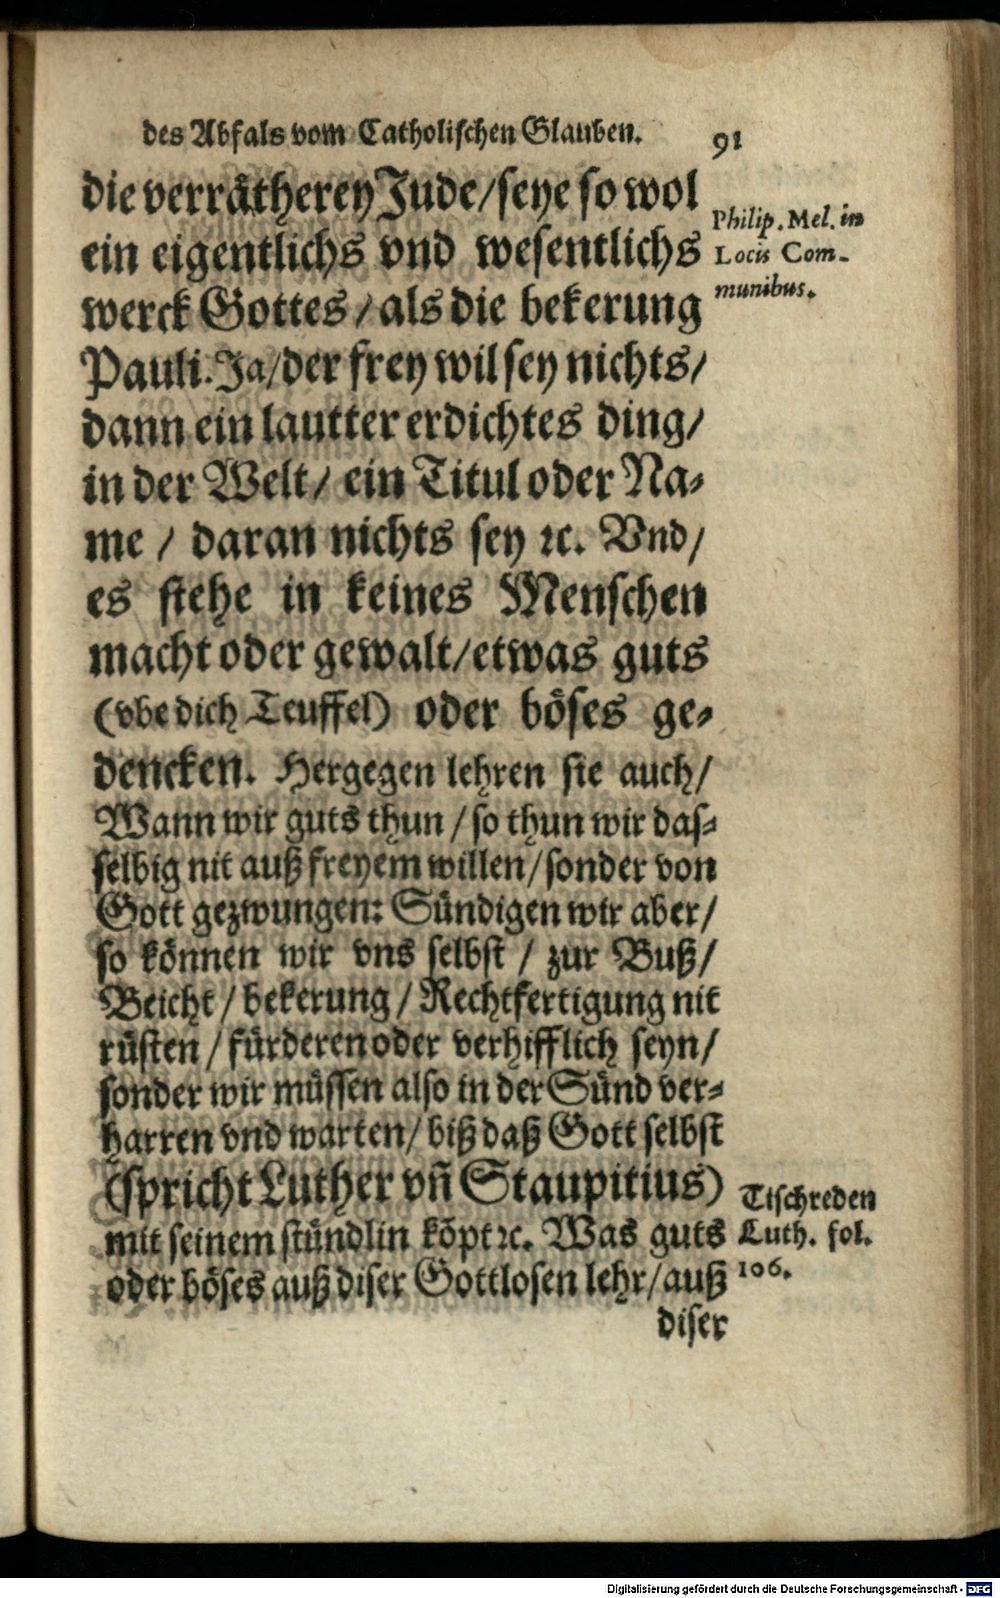 des Abfals vom Catholischen Glauben. 91
die verrätherey Jude/seye so wol
ein eigentlichs vnd wesentlichs
werck Gottes/als die bekerung
Pauli. Ja/der frey wil sey nichts/
dann ein lautter erdichtes ding/
in der Welt/ ein Titul oder Na-
me / daran nichts sey ꝛc. Vnd/
es stehe in keines Menschen
macht oder gewalt/etwas guts
(vbe dich Teuffel) oder böses ge-
dencken. Hergegen lehren sie auch/
Wann wir guts thun/so thun wir das-
selbig nit auß freyem willen/sonder von
Gott gezwungen: Sündigen wir aber/
so können wir vns selbst / zur Buß/
Beicht/bekerung/Rechtfertigung nit
rüsten/fürderen oder verhifflich seyn/
sonder wir müssen also in der Sünd ver-
harren vnd warten/ biß daß Gott selbst
(spricht Luther vñ Staupitius)
mit seinem stündlin köpt ꝛc. Was guts
oder böses auß diser Gottlosen lehr/auß
diser
Philip. Mel. in
Locis Com-
munibus.
Tischreden
Luth. fol.
106.
Digitalisierung gefördert durch die Deutsche Forschungsgemeinschaft - DFG